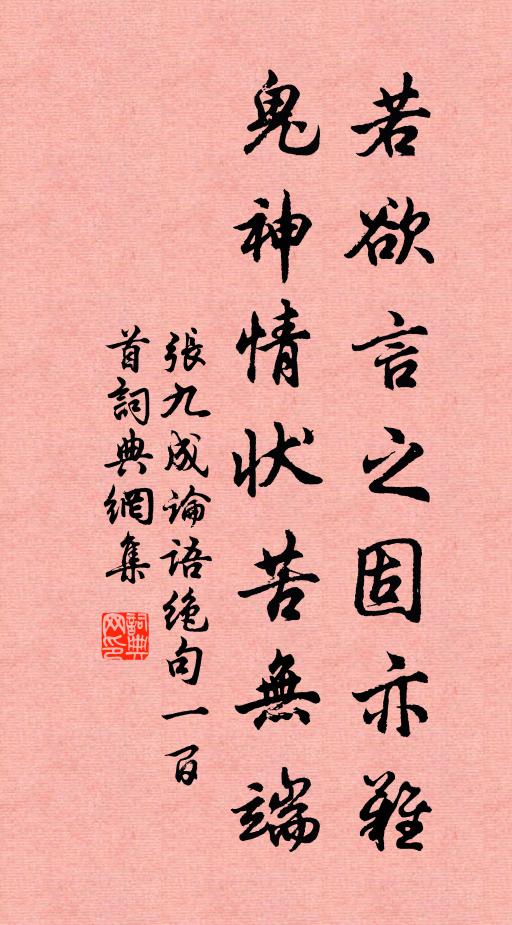 若欲言之固亦難
鬼神情状苦無端
張九成論語絶句一百
首詞典網集
詞典
网印